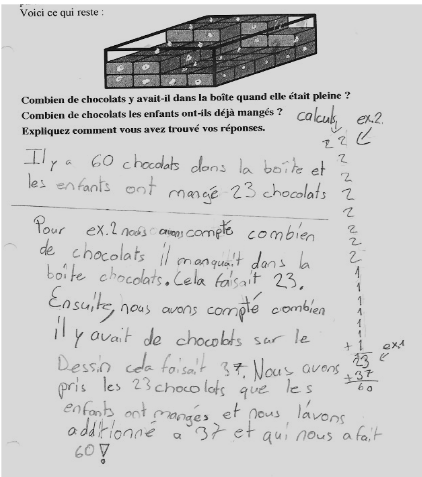 Voici ce qui reste :
Combien de chocolats y avait-il dans la boîte quand elle était pleine ?
Combien de chocolats les enfants ont-ils déjà mangés ?
Expliquez comment vous avez trouvé vos réponses.
calculs ex.2
Il y a 60 chocolats dans la boîte et
les enfants ont mangé 23 chocolats
Pour ex.2 nous avons compté combien
de chocolats il manquait dans la
boîte chocolats. Cela faisait 23.
Ensuite, nous avons compté combien
il y avait de chocolats sur le
Dessin cela faisait 37. Nous avons
pris les 23 chocolats que les
enfants ont mangés et nous l'avons
additionné a 37 et qui nous a fait
60!
2 2
2
2
2
2
2
2
2
1
1
1
1
1
1
+ 1
23 ex1
+ 37
60